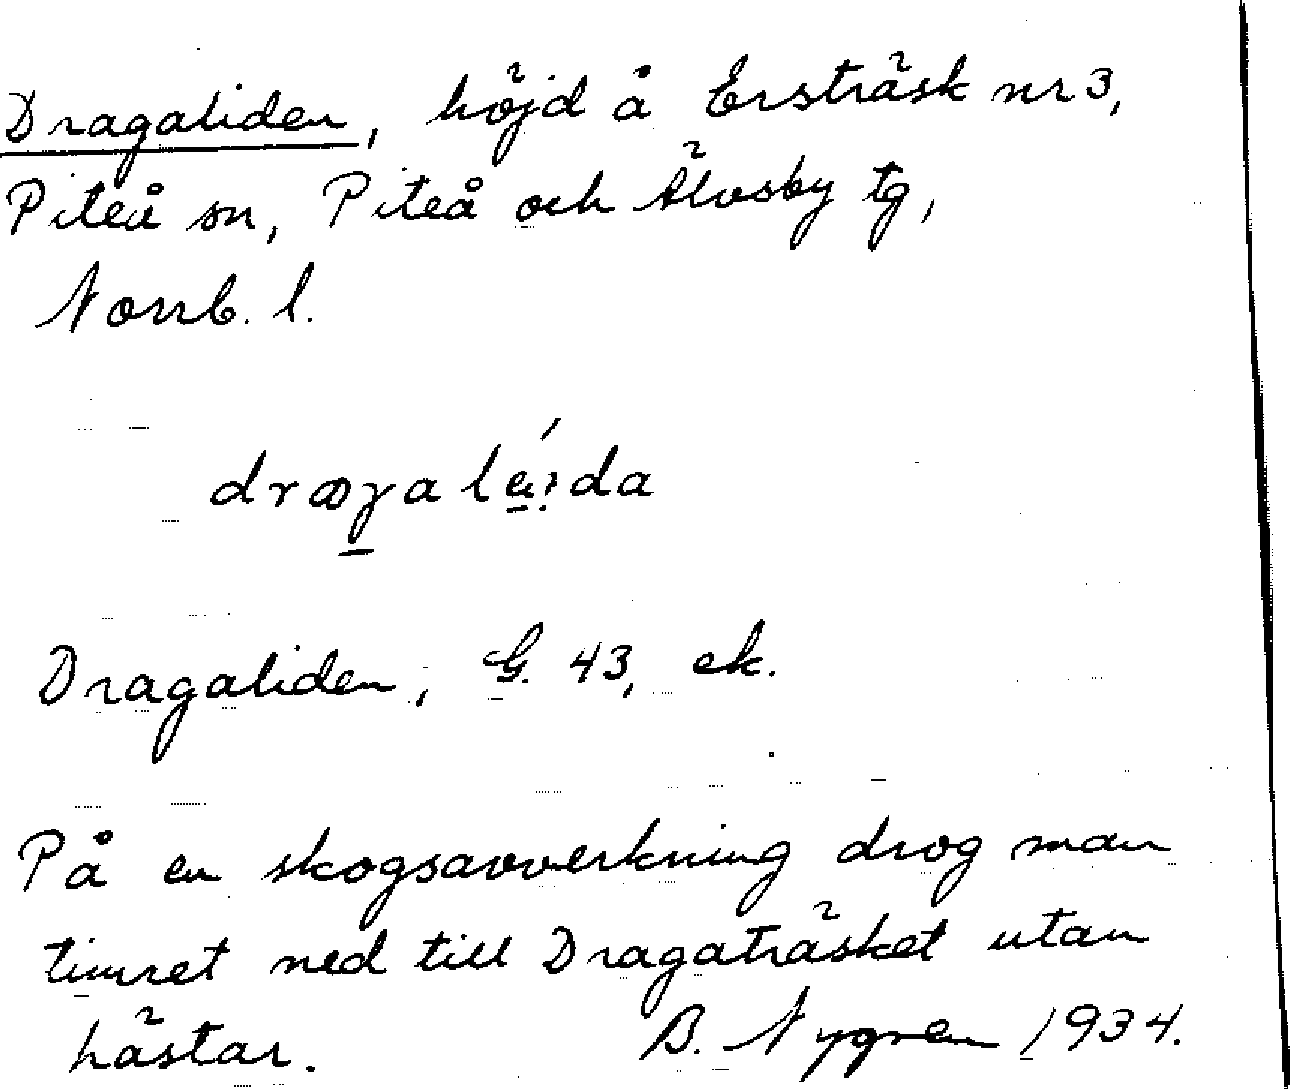 Dragaliden, höjd å Ersträsk nr 3,
Piteå sn, Piteå och Älvsby tg,
Norrb. l.
Dragaliden, G. 43, ek.
På en skogsavverkning drog man
timret ned till Dragaträsket utan
hästar. B. Nygren 1934.